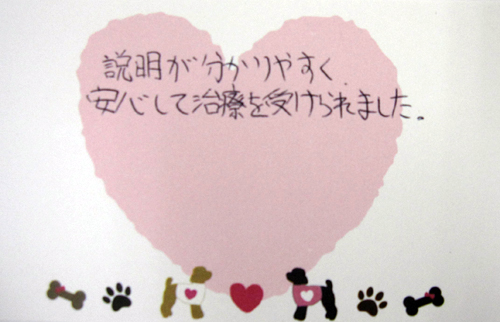 説明が分かりやすく、
安心して治療を受けられました。